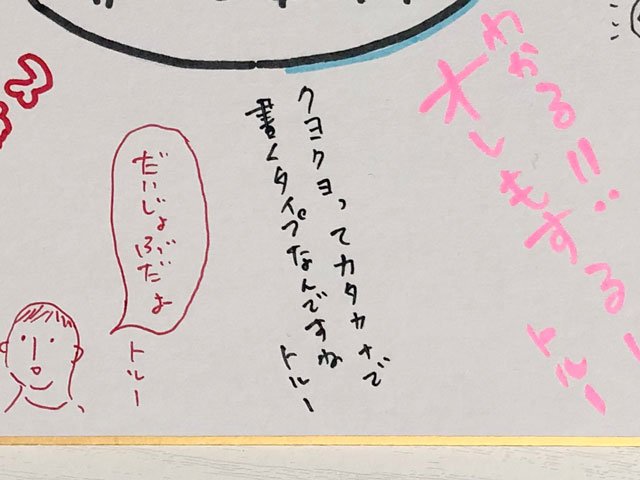 わかる!!
オレもする!
トルー
クヨクヨってカタカナで
書くタイプなんですね
トルー
だいじょ
ぶだよ
トルー